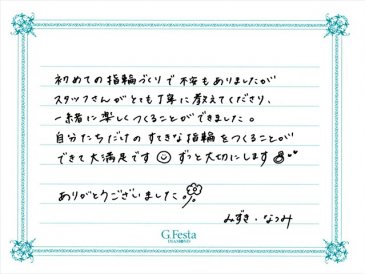 初めての指輪づくりで不安もありましたが
スタッフさんがとても丁寧に教えてくださり、
一緒に楽しくつくることができました。
自分たちだけのすてきな指輪をつくることが
できて大満足です ずっと大切にします
ありがとうございました。
みずき・なつみ
G.Festa
DIAMOND